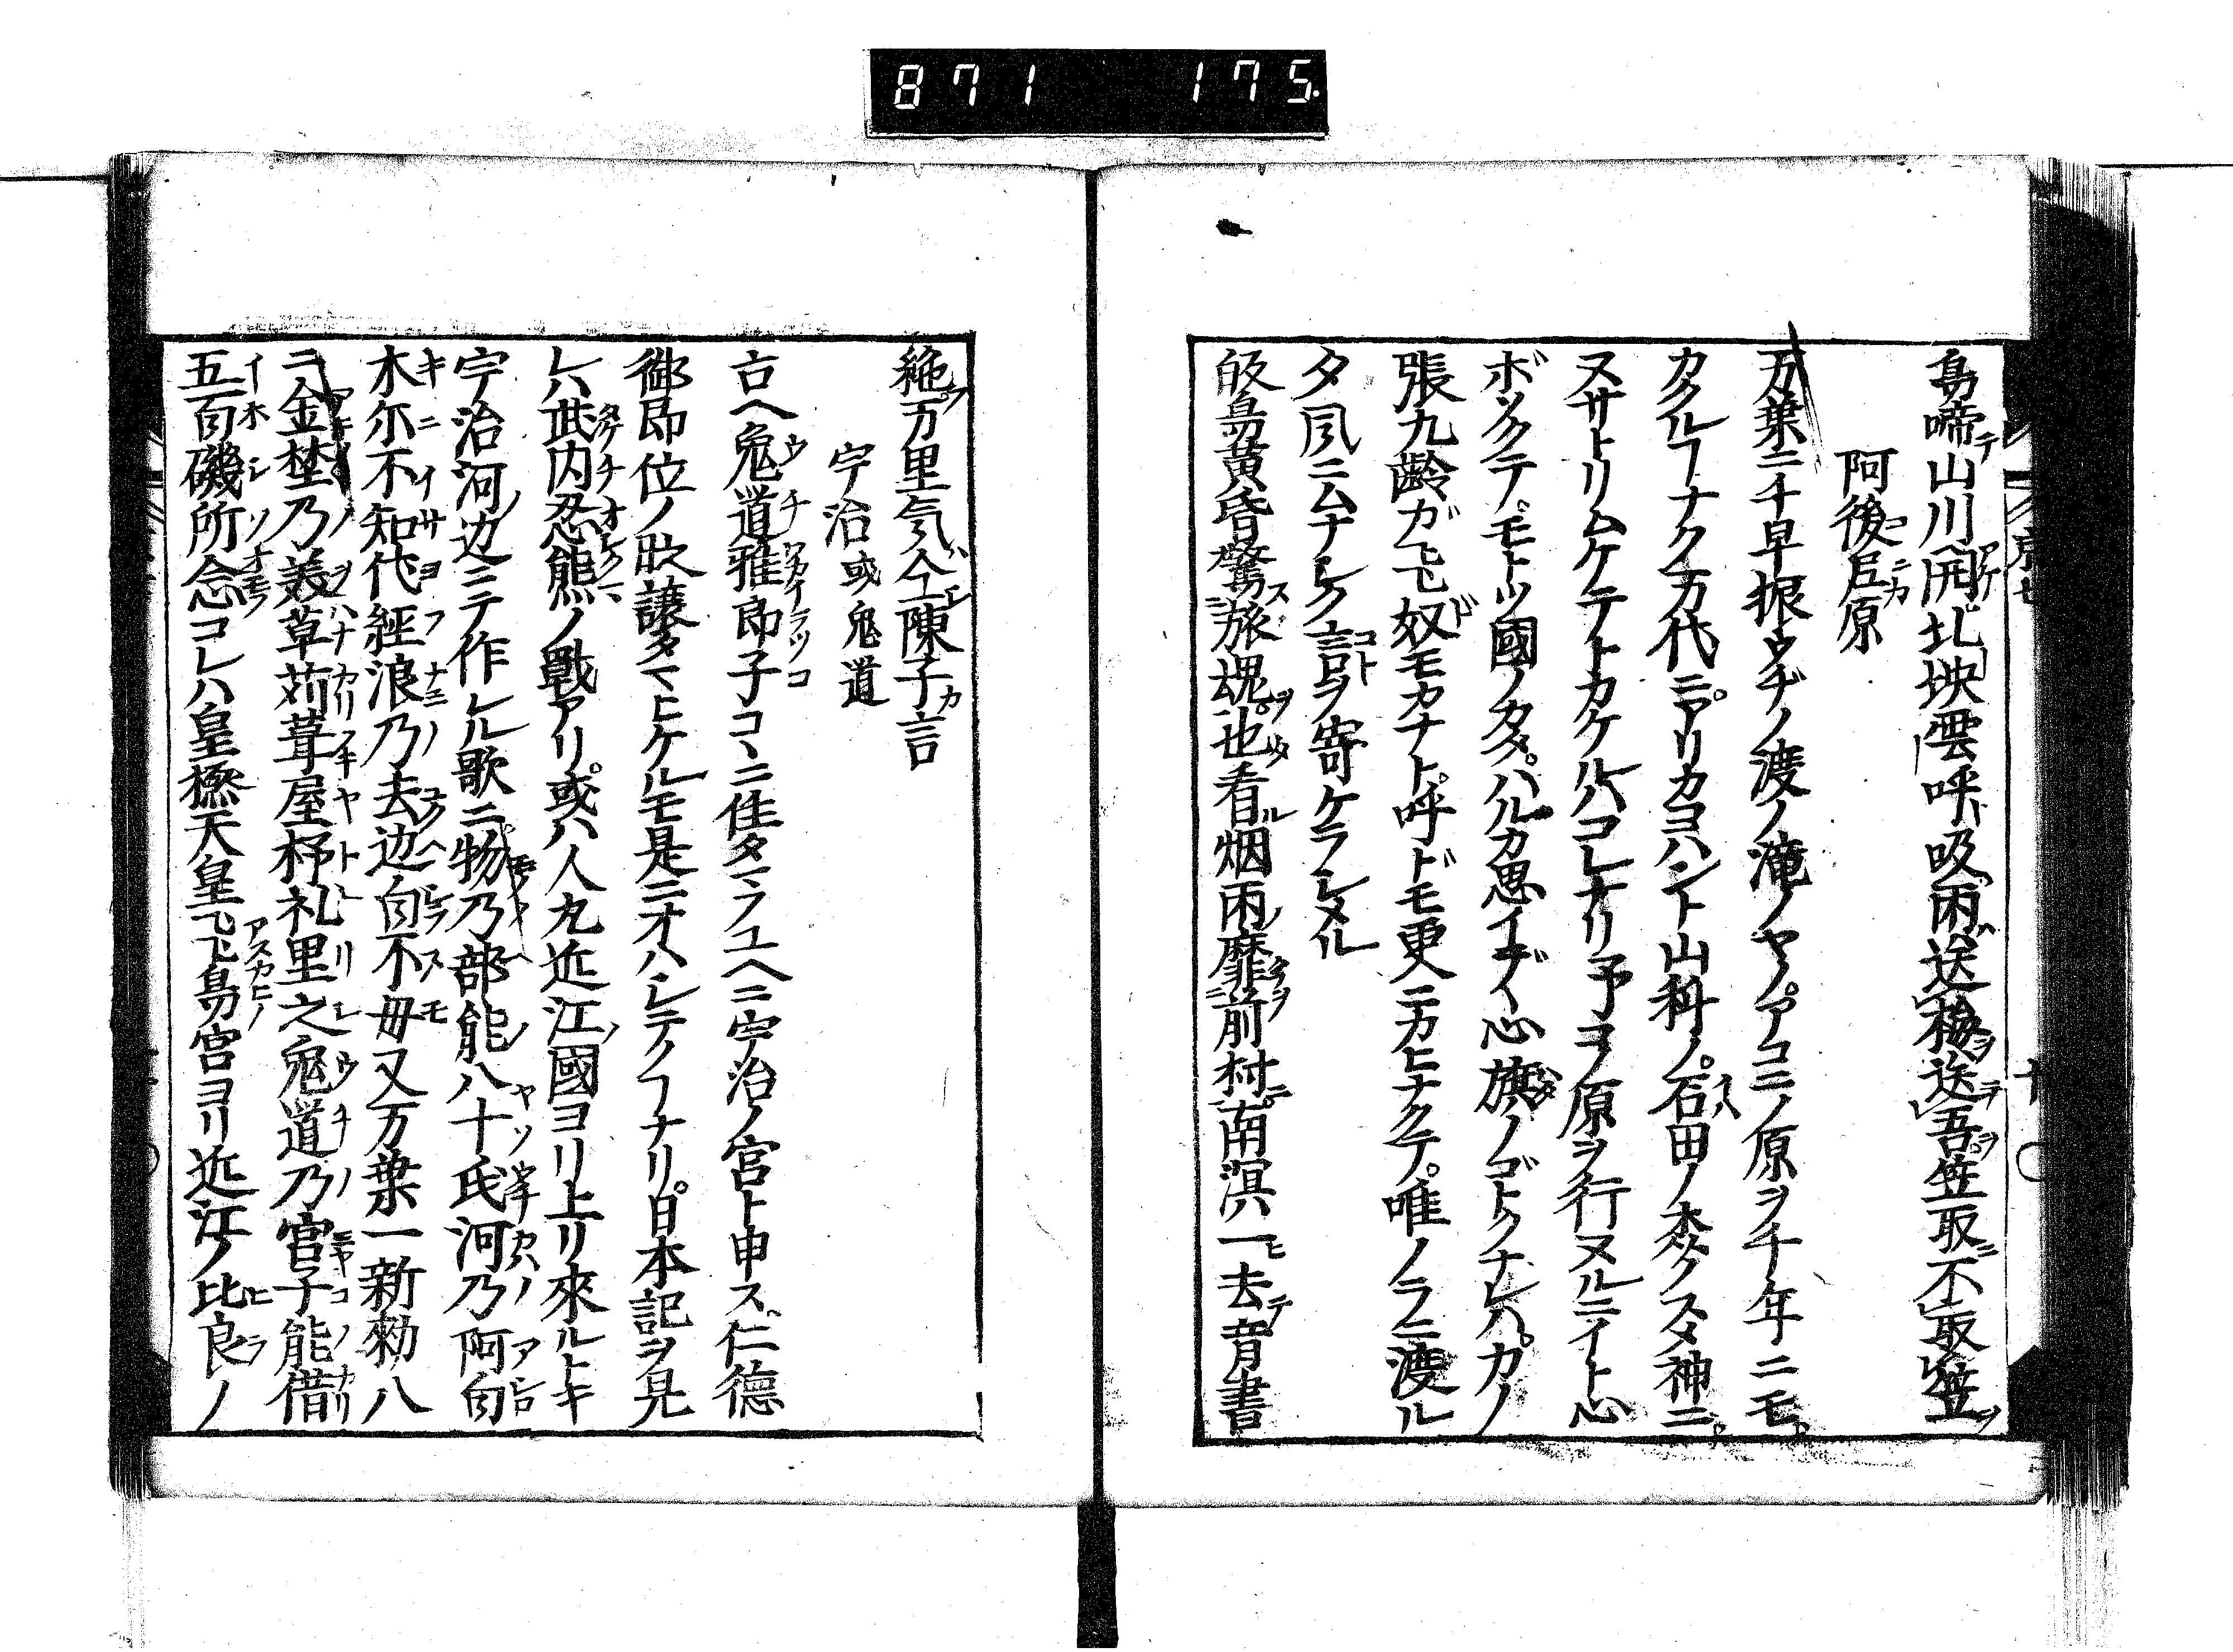 871 175.
鳥啼テ山川開アケ北坱雲呼ド吸雨送梅ヲ送テ吾ヲ笠取ニ不取笠ヲ
阿後尼原
万葉ニ千早振ウヂノ渡ノ滝ノヤノアコニノ原ヲ千年ニモ
カクルヿナク万代ニアリカヨハント山科ノ石田ノ森ノスダ神ニ
ヌサトリムケテトカケルハコレナリ予ヨノ原ヲ行ヌルニイト心
ボソクテモトツ國ノカタハルカ思イデイ心旗ノゴトクナレハカノ
張九齢ガ飛奴モカナト呼ドモ更ニカヒナクテ唯ノラニ渡ル
夕風ニムナシク言ヲ寄ケラシメル
皈鳥黄昏驚旅魂也看烟雨靡前村南溟一去音書
絶万里気仝陳子言
宇治或菟道
古ヘ菟道雅郎子コヽニ住タマフユヘニ宇治ノ宮ト申ス仁德
御即位ノ欧譲タマヒケルモ是ニオハシテノフナリ日本記ヲ見
レハ武内忍熊ノ戰アリ或ハ人丸近江ノ國ヨリ上リ來ルトキ
宇治河ノ辺ニテ作レル歌ニ物乃部能八十氏河乃阿白
木尓不知代經浪乃去辺白不毋又万葉一新勅八
ニ金埜乃美草苅葺屋杼礼里之菟道乃宮子能借
五百磯所念コレハ皇極天皇飛鳥宮ヨリ近江ノ比良ノ